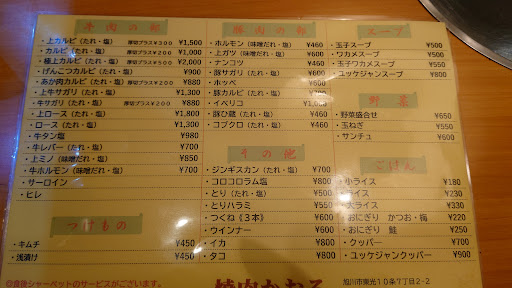 牛肉の部
・上カルビ（たれ・塩） 厚切プラス￥300 ￥1,500
・カルビ（たれ・塩） 厚切プラス￥200 ￥1,000
・極上カルビ（たれ・塩） 厚切プラス￥500 ￥2,000
・げんこつカルビ（たれ・塩） ￥900
・あか肉カルビ（たれ・塩） 厚切プラス￥200 ￥880
・上牛サガリ（たれ・塩） ￥1,300
・牛サガリ（たれ・塩） 厚切プラス￥200 ￥880
・上ロース（たれ・塩） ￥1,800
・ロース（たれ・塩） ￥1,300
・牛タン塩 ￥980
・牛レバー（たれ・塩） ￥700
・上ミノ（味噌だれ・塩） ￥850
・牛ホルモン（味噌だれ・塩） ￥700
・サーロイン
・ヒレ
つけもの
・キムチ ￥450
・浅漬け ￥450
◎食後シャーベットのサービスがございます。
豚肉の部
・ホルモン（味噌だれ・塩） ￥460
・上ガツ（味噌だれ・塩） ￥460
・ナンコツ ￥460
・豚サガリ（たれ・塩） ￥600
・ホッペ ￥600
・豚カルビ（たれ・塩） ￥700
・イベリコ ￥1,000
・豚ひ蔵（たれ・塩） ￥460
・コブクロ（たれ・塩） ￥460
その他
・ジンギスカン（たれ・塩） ￥700
・コロコロラム塩 ￥800
・とり（たれ・塩） ￥500
・とりハラミ ￥550
・つくね《３本》 ￥600
・ウインナー ￥600
・イカ ￥800
・タコ ￥800
焼肉かおる
スープ
・玉子スープ ￥500
・ワカメスープ ￥500
・玉子ワカメスープ ￥550
・ユッケジャンスープ ￥800
野菜
・野菜盛合せ ￥650
・玉ねぎ ￥550
・サンチュ ￥600
ごはん
・小ライス ￥180
・ライス ￥230
・大ライス ￥330
・おにぎり かつお・梅 ￥220
・おにぎり 鮭 ￥250
・クッパー ￥700
・ユッケジャンクッパー ￥900
旭川市東光１０条７丁目２-２